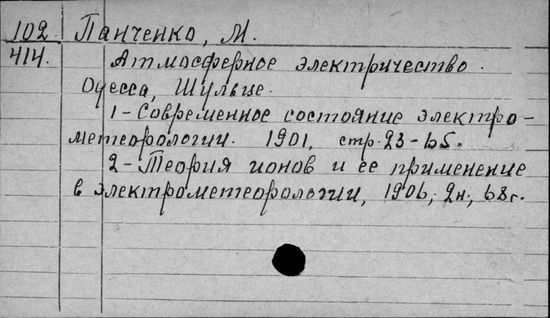 102. Панченко, М.
414. Атмосферное электричество.
Одесса, Шульце.
1 - Современное состояние электро-
метеорологии. 1901, стр. 23-65.
2 - Теория ионов и ее применение
в электрометеорологии, 1906, 2н, 68 г.